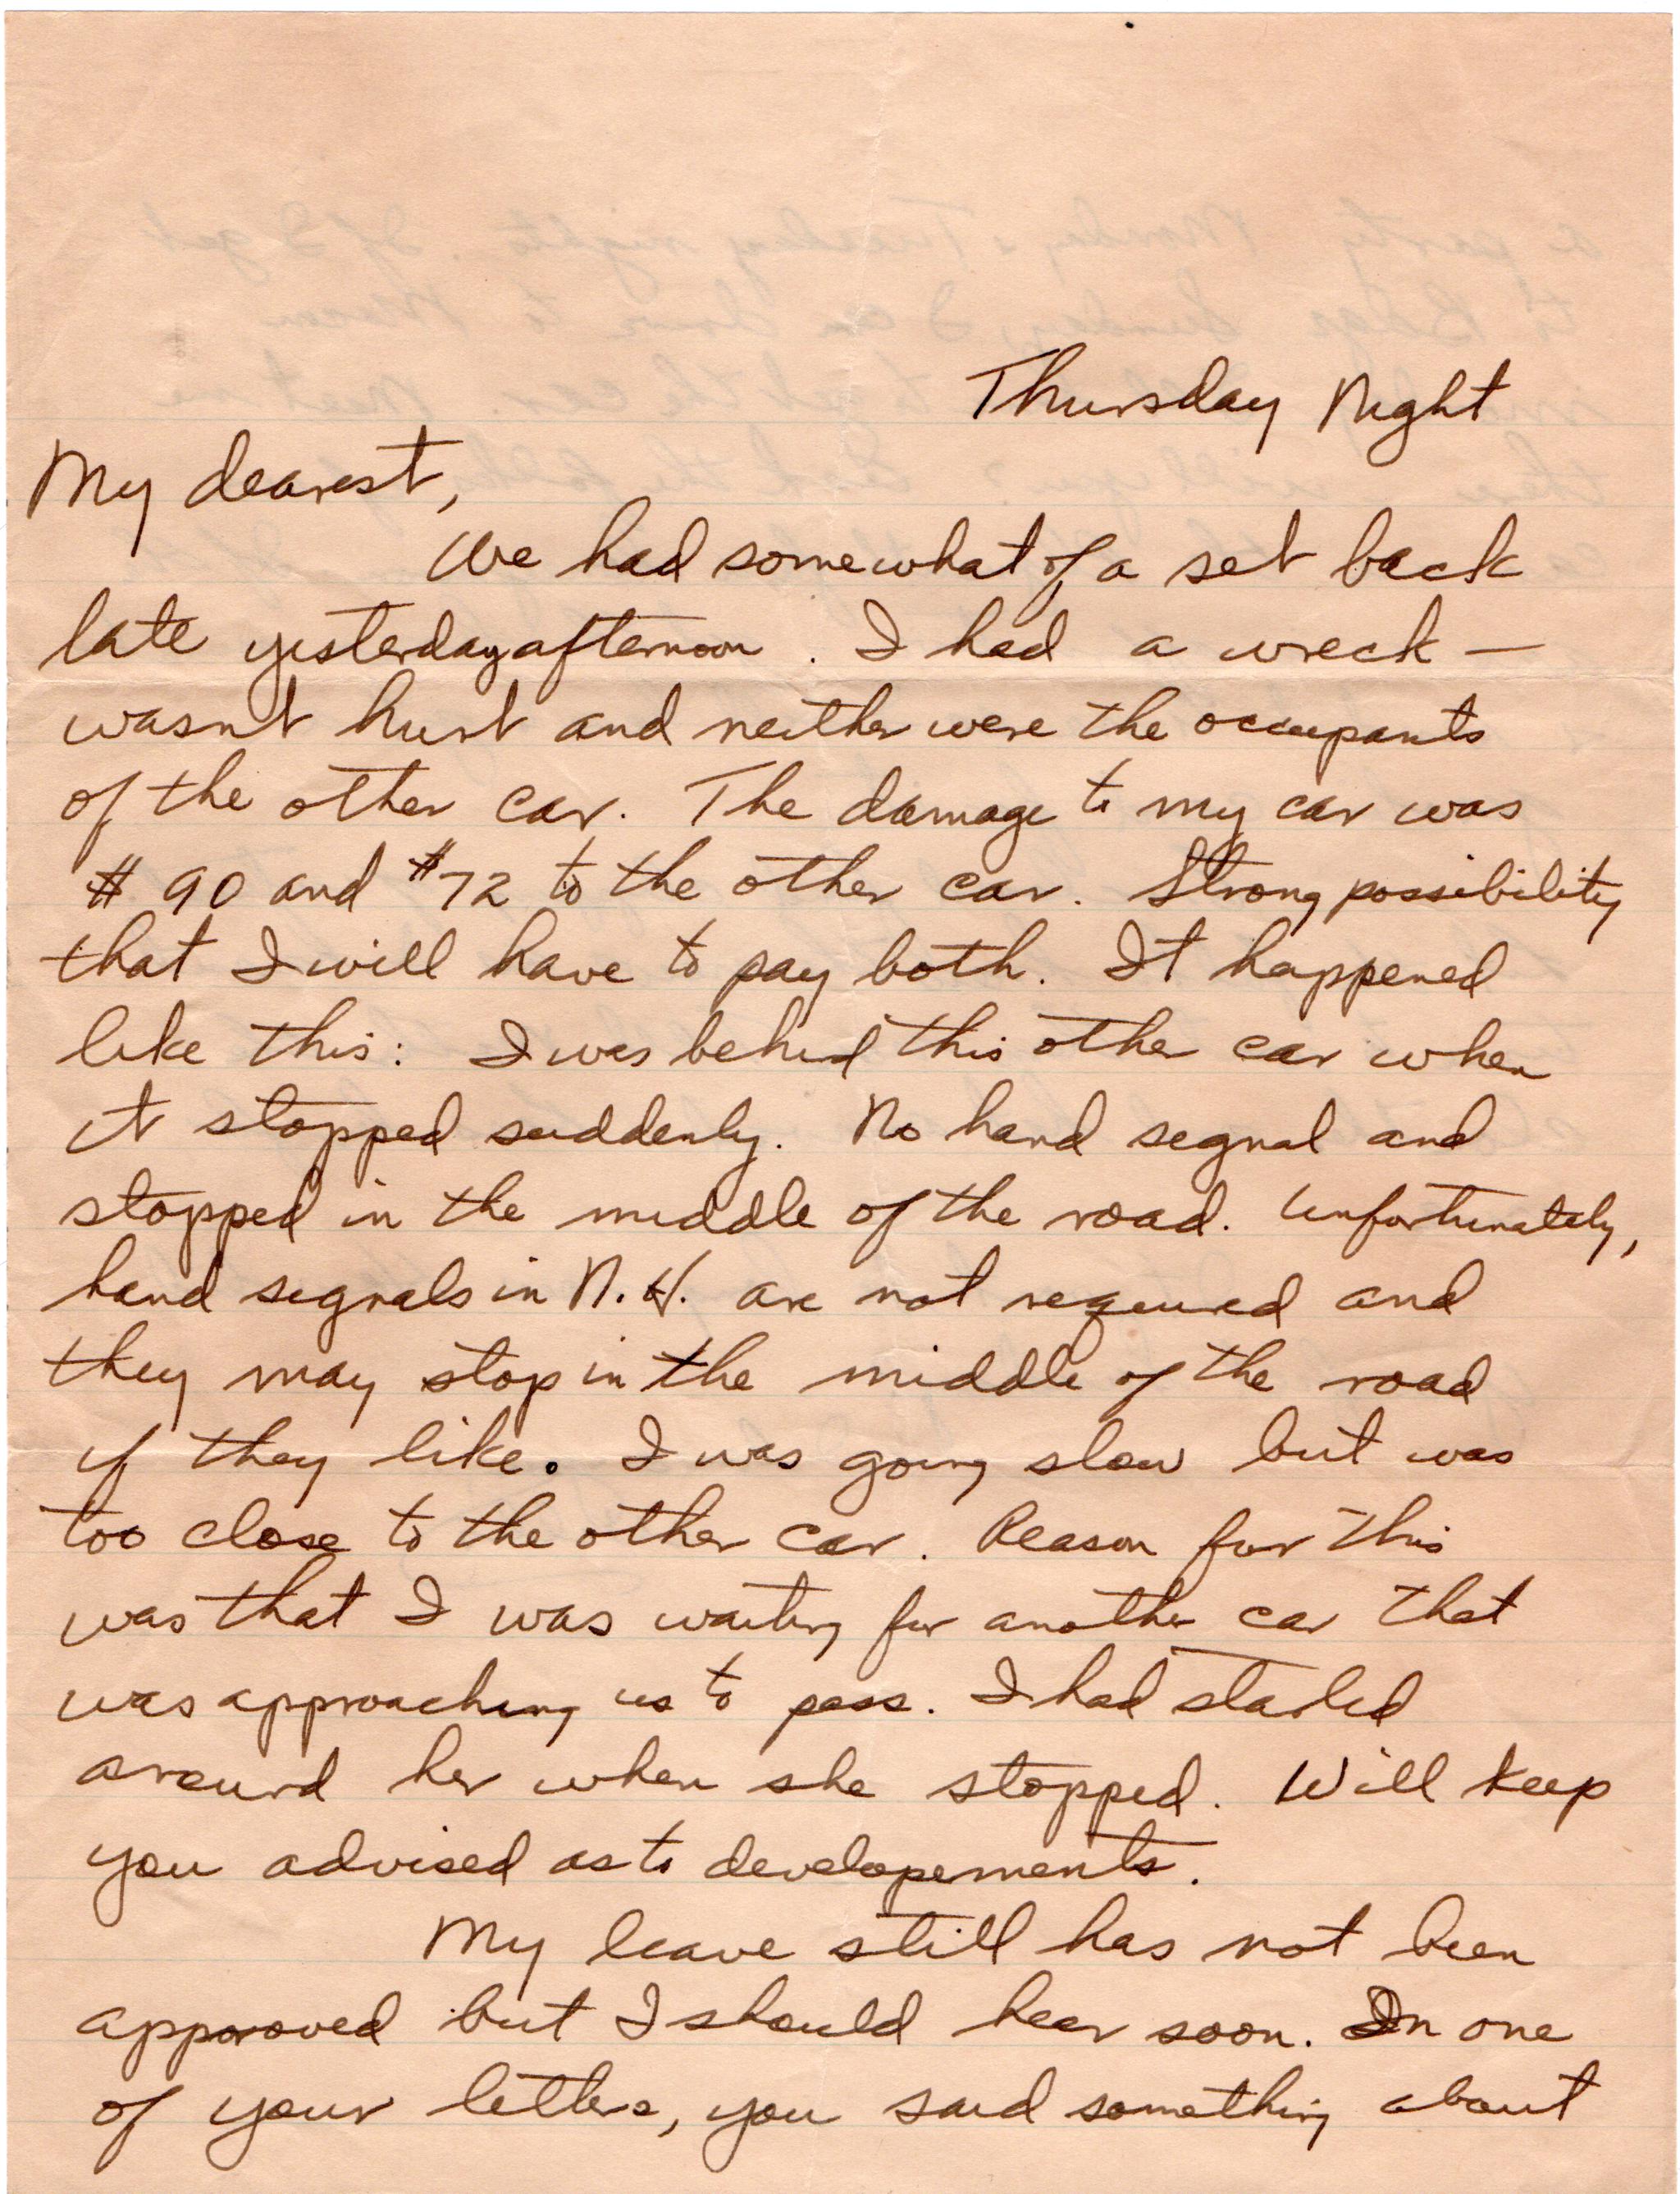 Thursday Night
My dearest,
We had somewhat of a set back
late yesterday afternoon. I had a wreck —
wasnt hurt and neither were the occupants
of the other car. The damage to my car was
$ 90 and $72 to the other car. Strong possibility
that I will have to pay both. It happened
like this: I was behind this other car when
it stopped suddenly. No hand signal and
stopped in the middle of the road. Unfortunately,
hand signals in N.H. are not required and
they may stop in the middle of the road
if they like. I was going slow but was
too close to the other car. Reason for this
was that I was waiting for another car that
was approaching us to pass. I had started
around her when she stopped. Will keep
you advised as to developements.
My leave still has not been
approved but I should hear soon. In one
of your letters, you said something about